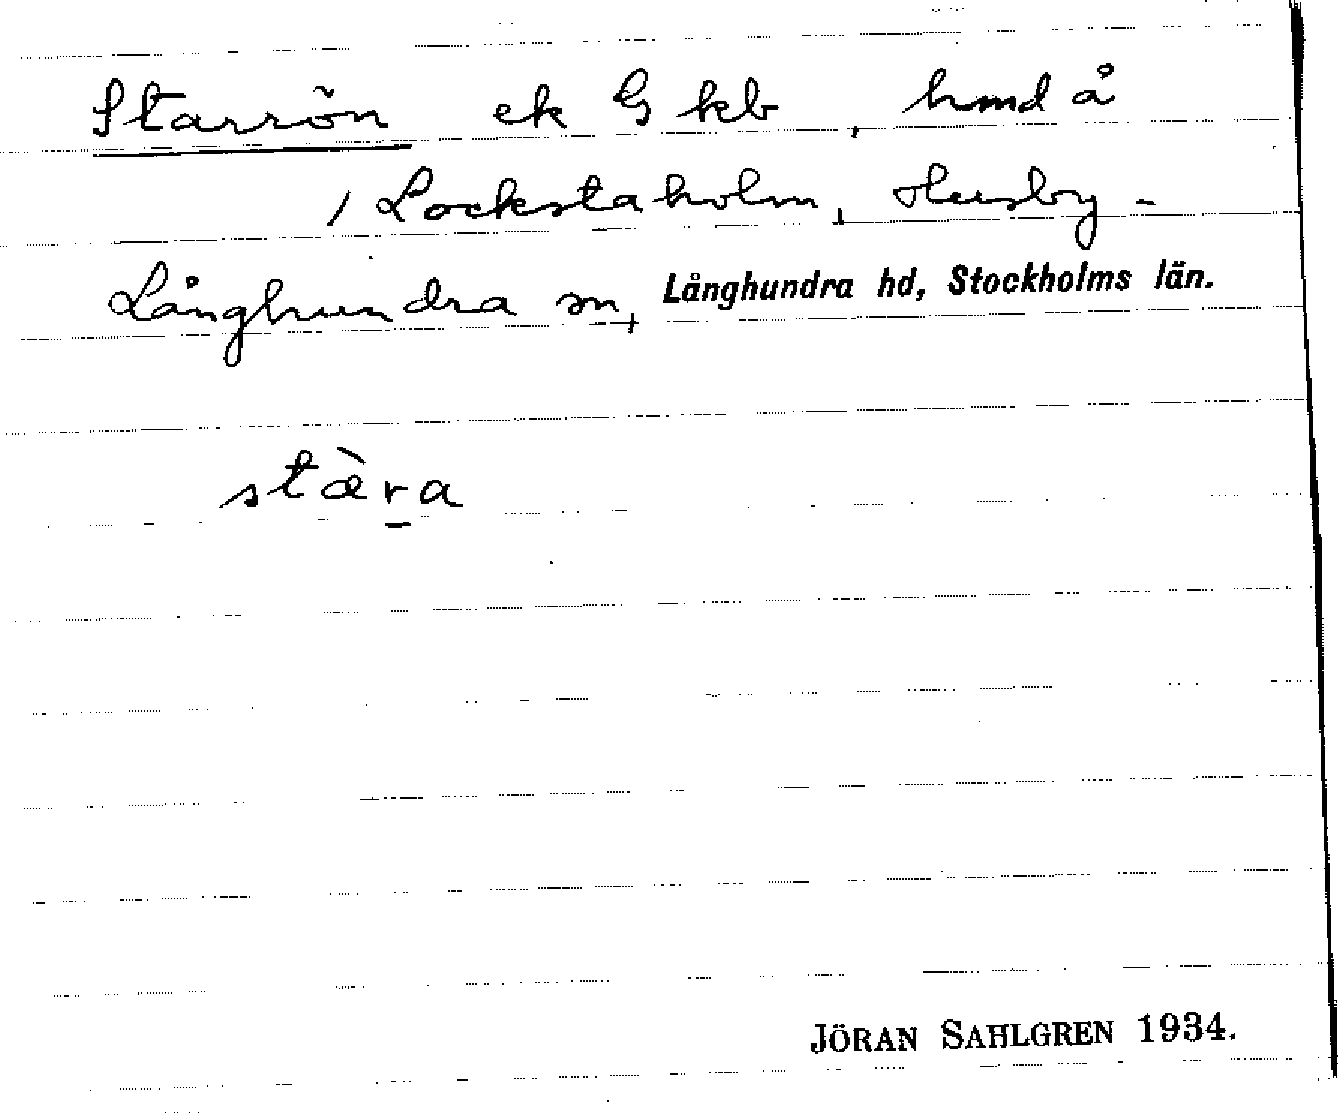 Starrön ek G kb, hmd å
/ Lockstaholm, Husby-
Långhundra sn, Långhundra hd, Stockholms län.
stæ̀ra
JÖRAN SAHLGREN 1934.